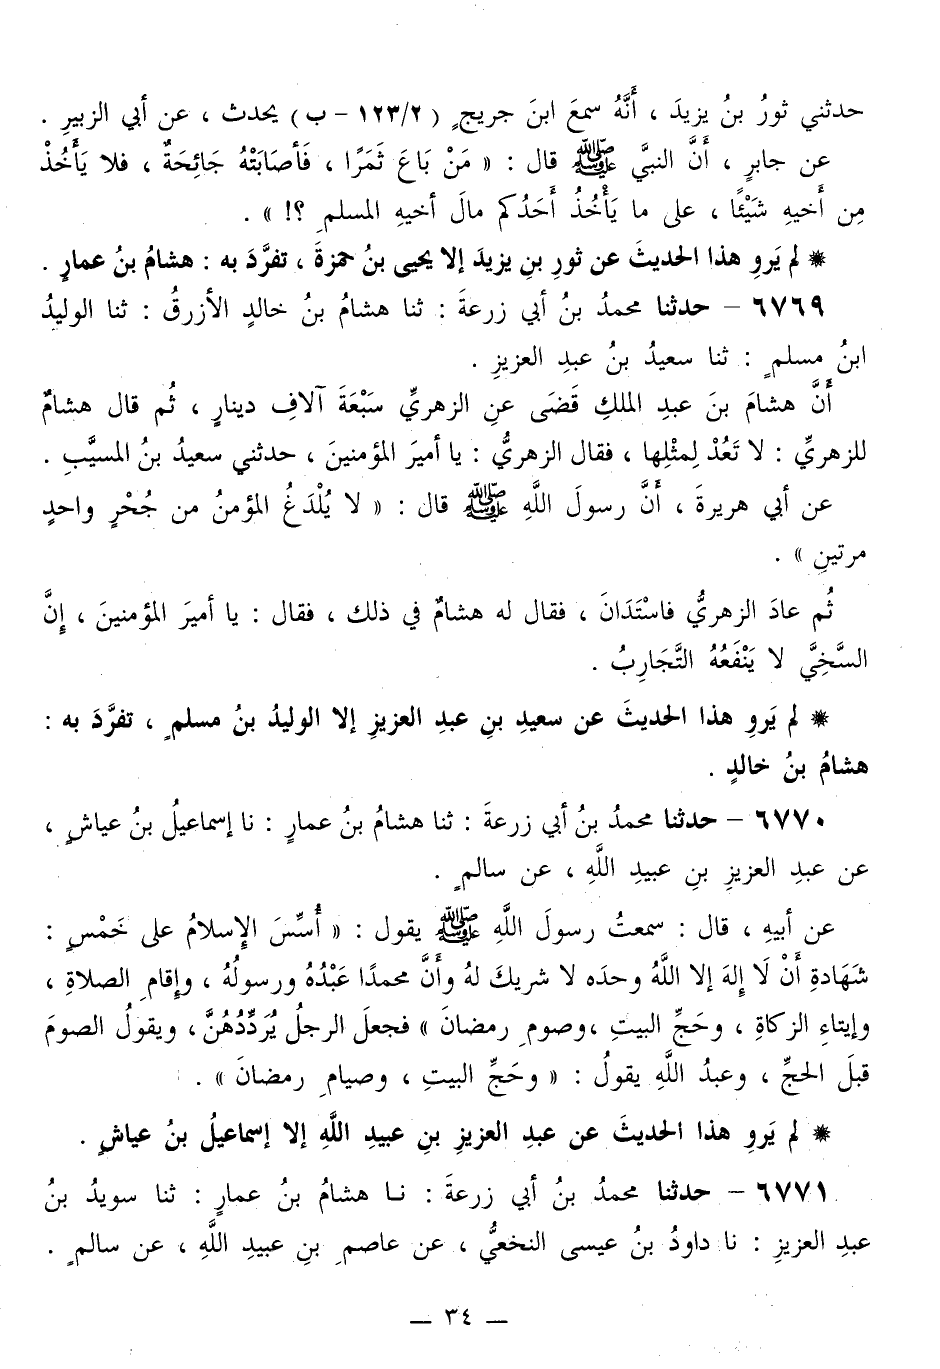 حدثني ثورُ بنُ يزيدَ ، أَنَّهُ سمعَ ابنَ جريجٍ ( ١٢٣/٢ – ب ) يحدث ، عن أبي الزبيرِ .
عن جابرٍ ، أَنَّ النبيَّ ﷺ قال : « مَنْ بَاعَ ثَمَرًا ، فَأصَابَتْهُ جَائِحَةٌ ، فلا يَأْخُذْ
مِن أَخيهِ شَيْئًا ، على ما يَأْخُذُ أَحَدُكم مالَ أخيهِ المسلمِ ؟! » .
* لم يَروِ هذا الحديثَ عن ثورِ بنِ يزيدَ إلا يحيى بنُ حمزةَ ، تفرَّدَ به : هشامُ بنُ عمارٍ .
٦٧٦٩ – حدثنا محمدُ بنُ أبي زرعةَ : ثنا هشامُ بنُ خالدٍ الأزرقُ : ثنا الوليدُ
ابنُ مسلمٍ : ثنا سعيدُ بنُ عبدِ العزيزِ .
أَنَّ هشامَ بنَ عبدِ الملكِ قَضَى عنِ الزهريِّ سَبْعَةَ آلافِ دينارٍ ، ثُم قال هشامٌ
للزهريِّ : لا تَعُدْ لِمثْلِها ، فقال الزهريُّ : يا أميرَ المؤمنينَ ، حدثني سعيدُ بنُ المسيَّبِ .
عن أبي هريرةَ ، أَنَّ رسولَ اللَّهِ ﷺ قال : « لا يُلْدَغُ المؤمنُ من جُحْرٍ واحدٍ
مرتينِ » .
ثُم عادَ الزهريُّ فاسْتَدَانَ ، فقال له هشامٌ في ذلك ، فقال : يا أميرَ المؤمنينَ ، إِنَّ
السَّخِيَّ لا يَنْفَعُهُ التَّجَارِبُ .
* لم يَروِ هذا الحديثَ عن سعيدِ بنِ عبدِ العزيزِ إلا الوليدُ بنُ مسلمٍ ، تفرَّدَ به :
هشامُ بنُ خالدٍ .
٦٧٧٠ – حدثنا محمدُ بنُ أبي زرعةَ : ثنا هشامُ بنُ عمارٍ : نا إسماعيلُ بنُ عياشٍ ،
عن عبدِ العزيزِ بنِ عبيدِ اللَّهِ ، عن سالمٍ .
عن أبيهِ ، قال : سمعتُ رسولَ اللَّهِ ﷺ يقول : « أُسِّسَ الإِسلامُ على خَمْسٍ :
شَهَادةِ أَنْ لَا إِلهَ إلا اللَّهُ وحدَه لا شريكَ لهُ وأَنَّ محمدًا عَبْدُهُ ورسولُهُ ، وإِقامِ الصلاةِ ،
وإيتاءِ الزكاةِ ، وحَجِّ البيتِ ،وصومِ رمضانَ » فجعلَ الرجلُ يُرَدِّدُهُنَّ، ويقولُ الصومَ
قبلَ الحجِّ ، وعبدُ اللَّهِ يقولُ : « وحَجِّ البيتِ ، وصيامِ رمضانَ » .
* لم يَروِ هذا الحديثَ عن عبدِ العزيزِ بنِ عبيدِ اللَّهِ إلا إسماعيلُ بنُ عياشٍ .
٦٧٧١ – حدثنا محمدُ بنُ أبي زرعةَ : نا هشامُ بنُ عمارٍ : ثنا سويدُ بنُ
عبدِ العزيزِ : نا داودُ بنُ عيسى النخعيُّ ، عن عاصمِ بنِ عبيدِ اللَّهِ ، عن سالمٍ .
— ٣٤ —